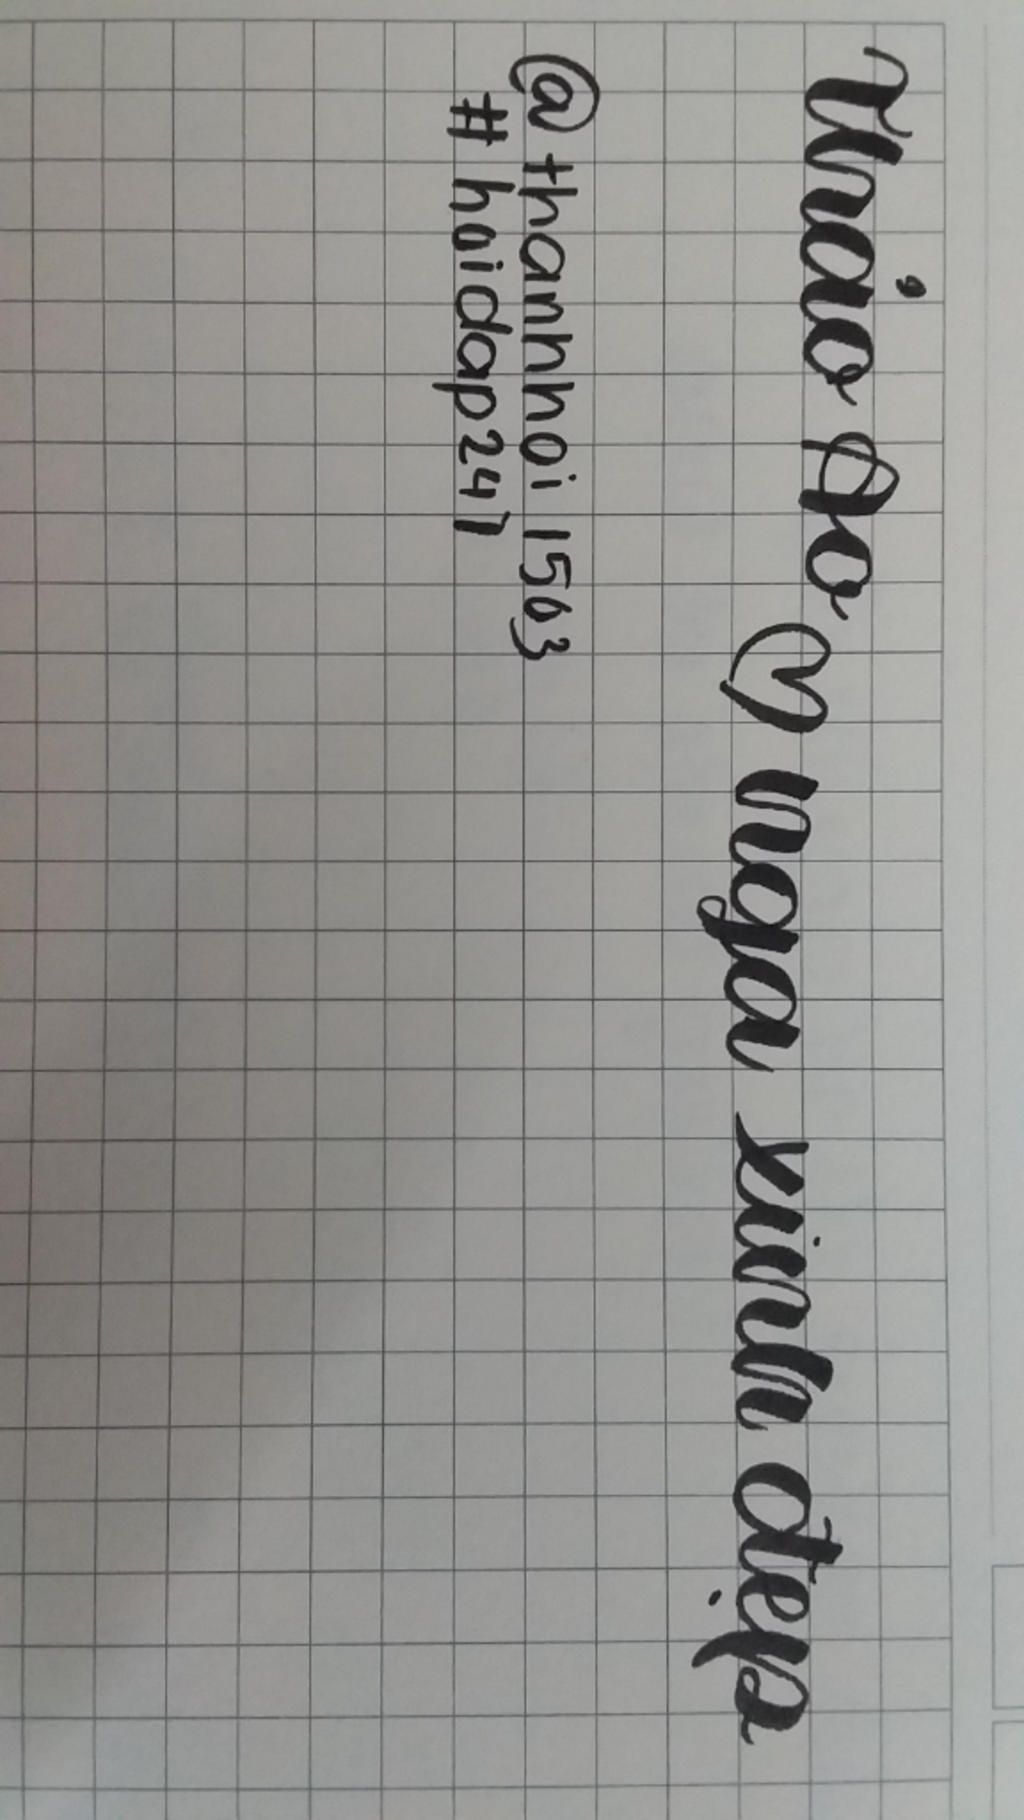 Thảo Ao ♡ nga xinh đẹp
@thanhhoi1503
#hoidap247